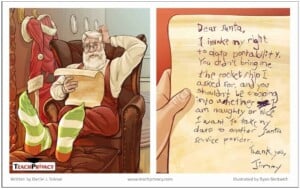 Dear Santa,
I invoke my right
to data portability.
You didn't bring me
the rocket ship I
asked for, and you
shouldn't be snooping
into whether
am naughty or nice
I want to take my
data to another Santa
service provider.
Thank you,
Jimmy
TEACHPRIVACY
Written by Daniel J. Solove
www.teachprivacy.com
Illustrated by Ryan Beckwith